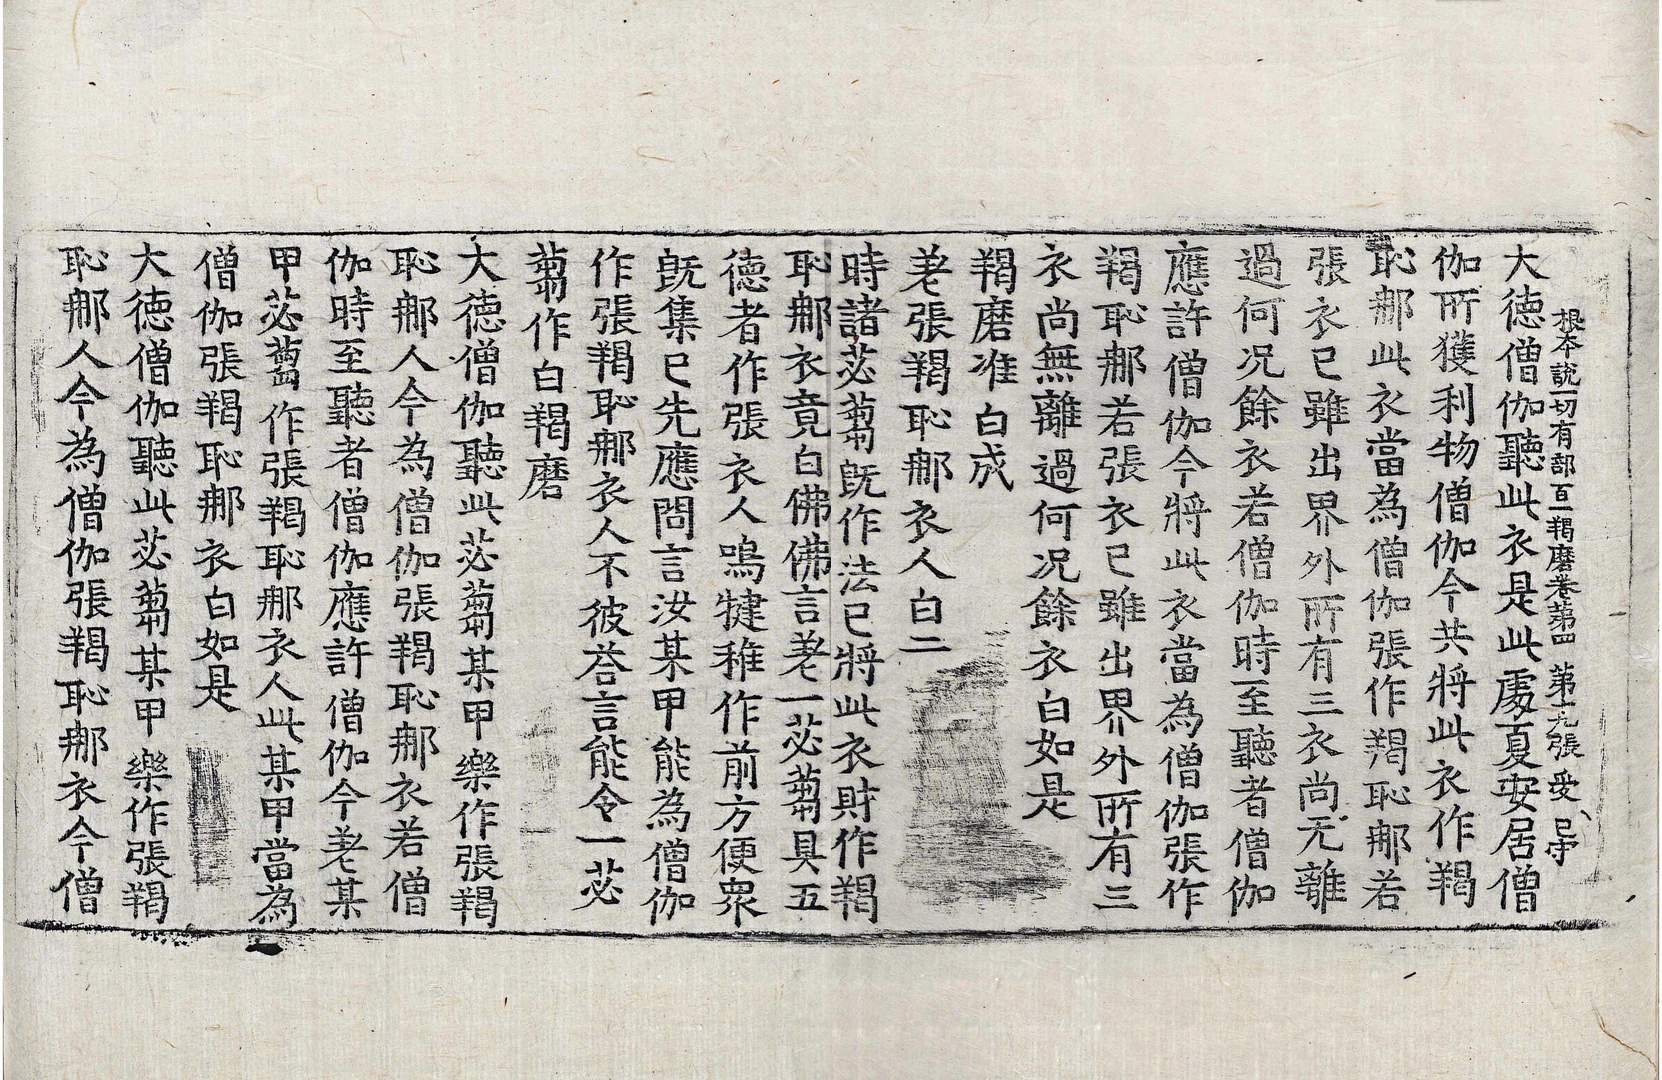 根本說一切有部百一羯磨卷第四 第十九張 受
大德僧伽聽此衣是此處夏安居僧
伽所獲利物僧伽今共將此衣作羯
恥那此衣當為僧伽張作羯恥那若
張衣已雖出界外所有三衣尚无離
過何況餘衣若僧伽時至聽者僧伽
應許僧伽今將此衣當為僧伽張作
羯恥那若張衣已雖出界外所有三
衣尚無離過何況餘衣白如是
羯磨准白成
差張羯恥那衣人白二
時諸苾蒭旣作法已將此衣財作羯
恥那衣竟白佛佛言差一苾蒭具五
德者作張衣人鳴犍稚作前方便衆
旣集已先應問言汝某甲能為僧伽
作張羯恥那衣人不彼荅言能令一苾
蒭作白羯磨
大德僧伽聽此苾蒭某甲樂作張羯
恥那人今為僧伽張羯恥那衣若僧
伽時至聽者僧伽應許僧伽今差某
甲苾蒭作張羯恥那衣人此某甲當為
僧伽張羯恥那衣白如是
大德僧伽聽此苾蒭某甲樂作張羯
恥那人今為僧伽張羯恥那衣今僧